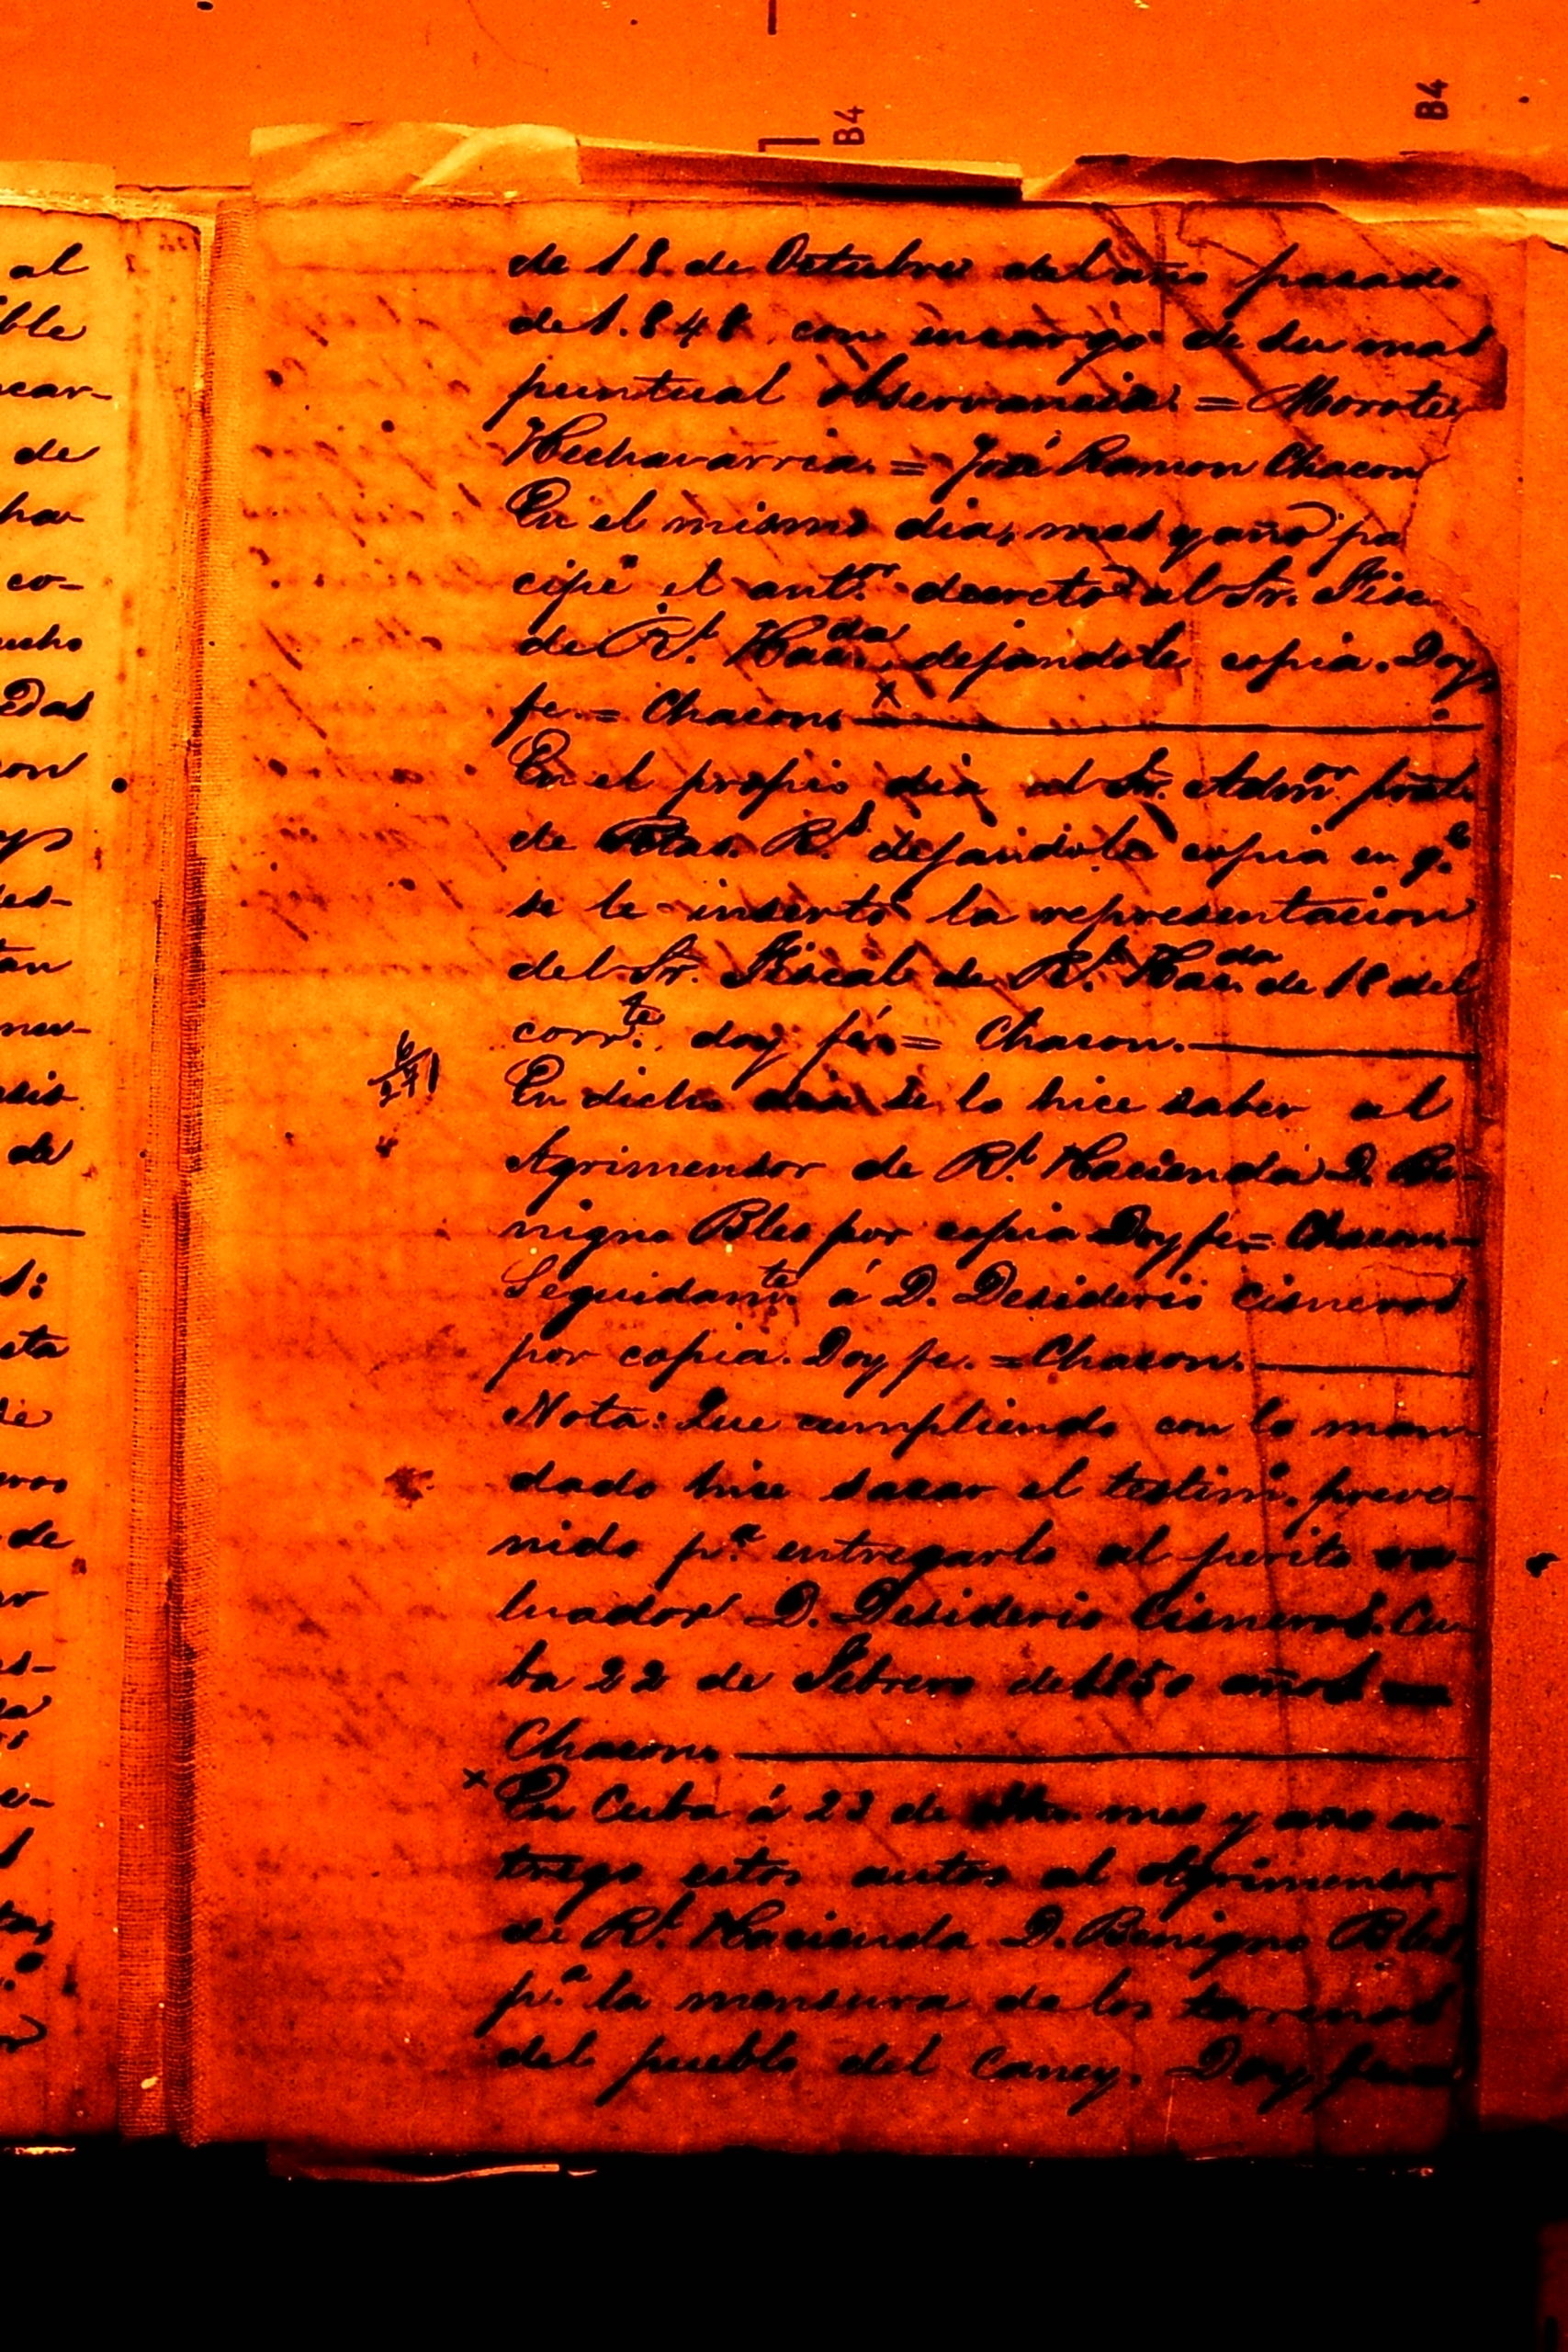 B4
B4
de 18 de Octubre del año pasado
de 1.848. con encargo de su mas
puntual observancia. = Morote
Hechavarria. = José Ramon Chacon
En el mismo dia, mes y año pa
cipé el ant.or decreto al Sr. Fisc
de R.l Hac.da dejandole copia. Doy
fe. = Chacon.
x
En el propio dia al Sr. Adm.or pral.
de Rtas. R.s dejandole copia en q.e
se le insertó la representacion
del Sr. Fiscal de R.l Hac.da de 18 del
corr.te doy fé = Chacon.
En dicho dia se lo hice saber al
Agrimensor de R.l Hacienda D. Be-
nigno Bles por copia Doy fe = Chacon
Seguidam.te á D. Desiderio Cisneros
por copia. Doy fe. = Chacon.
Nota: Que cumpliendo con lo man
dado hice sacar el testim.o preve-
nido p.a entregarlo al perito va-
luador D. Desiderio Cisneros. Cu-
ba 22 de Febrero de 1850 años =
Chacon.
x En Cuba á 23 de mes y año en-
trego estos autos al Agrimensor
de R.l Hacienda D. Benigno Bles
p.a la mensura de los terrenos
del pueblo del Caney. Doy fe
al
ble
car-
de
ha
co-
ucho
Das
on
des-
tan
de
eta
de